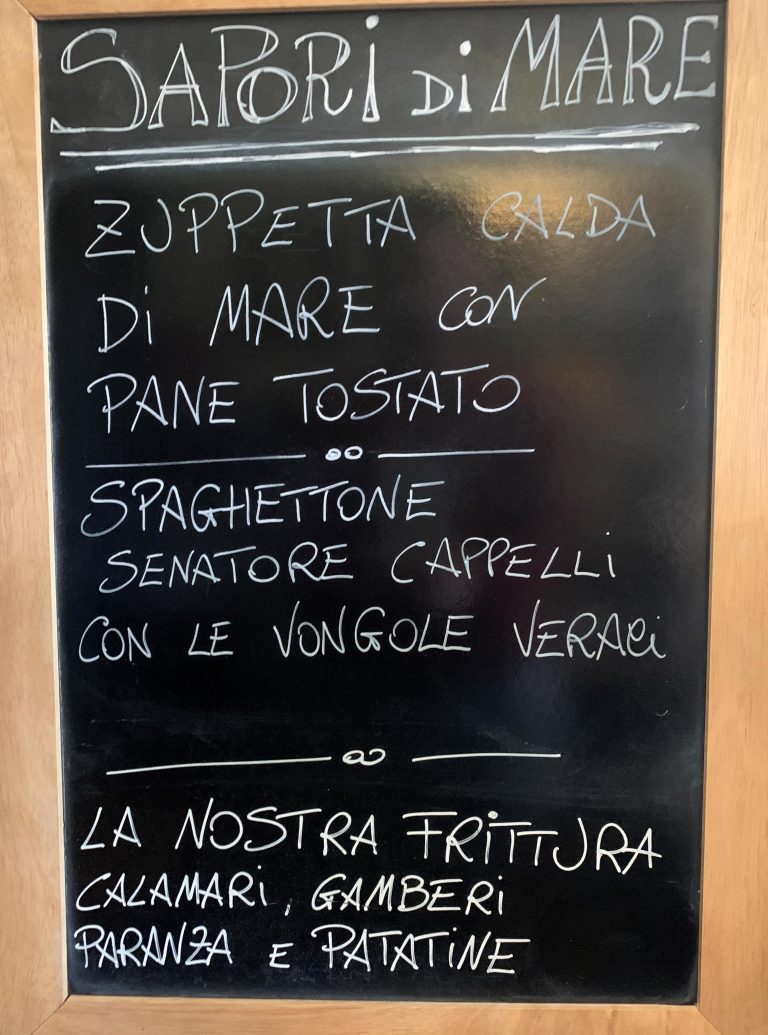 SAPORi Di MARE
ZUPPETTA CALDA
Di MARE CON
PANE TOSTATO
SPAGHETTONE
SENATORE CAPPELLi
CON LE VONGOLE VERACi
LA NOSTRA FRiTTURA
CALAMARi, GAMBERi
PARANZA E PATATiNE